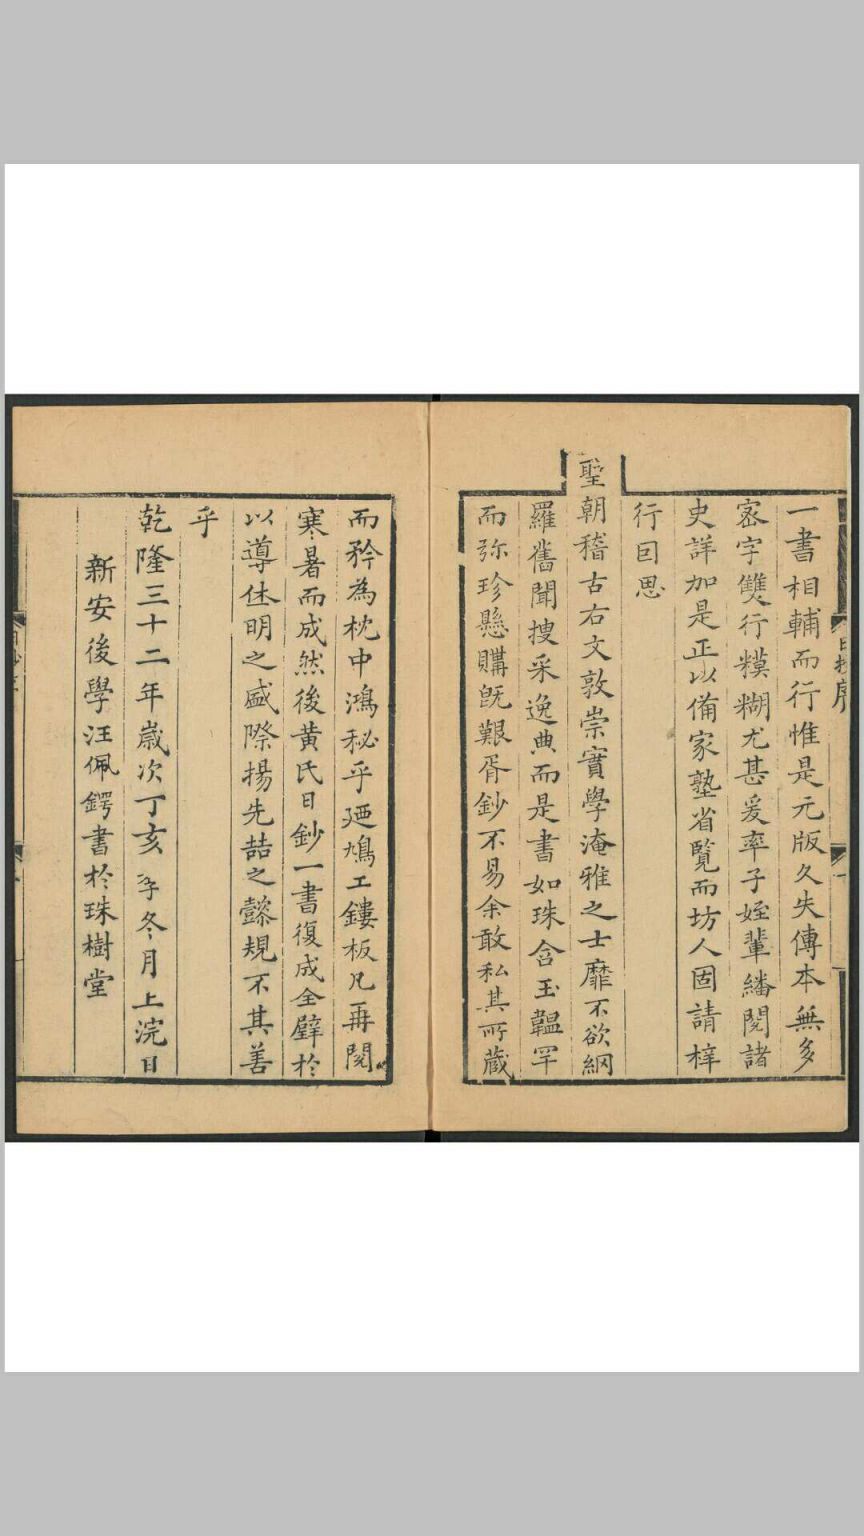 一書相輔而行惟是元版久失傳本無多
宻字雙行糢糊尤甚爰率子姪輩繙閱諸
史詳加是正以備家塾省覽而坊人固請梓
行囙思
聖朝稽古右文敦崇實學淹雅之士靡不欲網
羅舊聞搜采逸典而是書如珠含玉韞罕
而弥珍懸購旣艱胥鈔不易余敢私其所蔵
而矜為枕中鴻秘乎廼鳩工鏤板凡再閱
寒暑而成然後黄氏日鈔一書復成全璧於
以導休明之盛際揚先喆之懿規不其善
乎
乾隆三十二年歲次丁亥孟冬月上浣日
新安後學汪佩鍔書於珠樹堂
日抄序
一